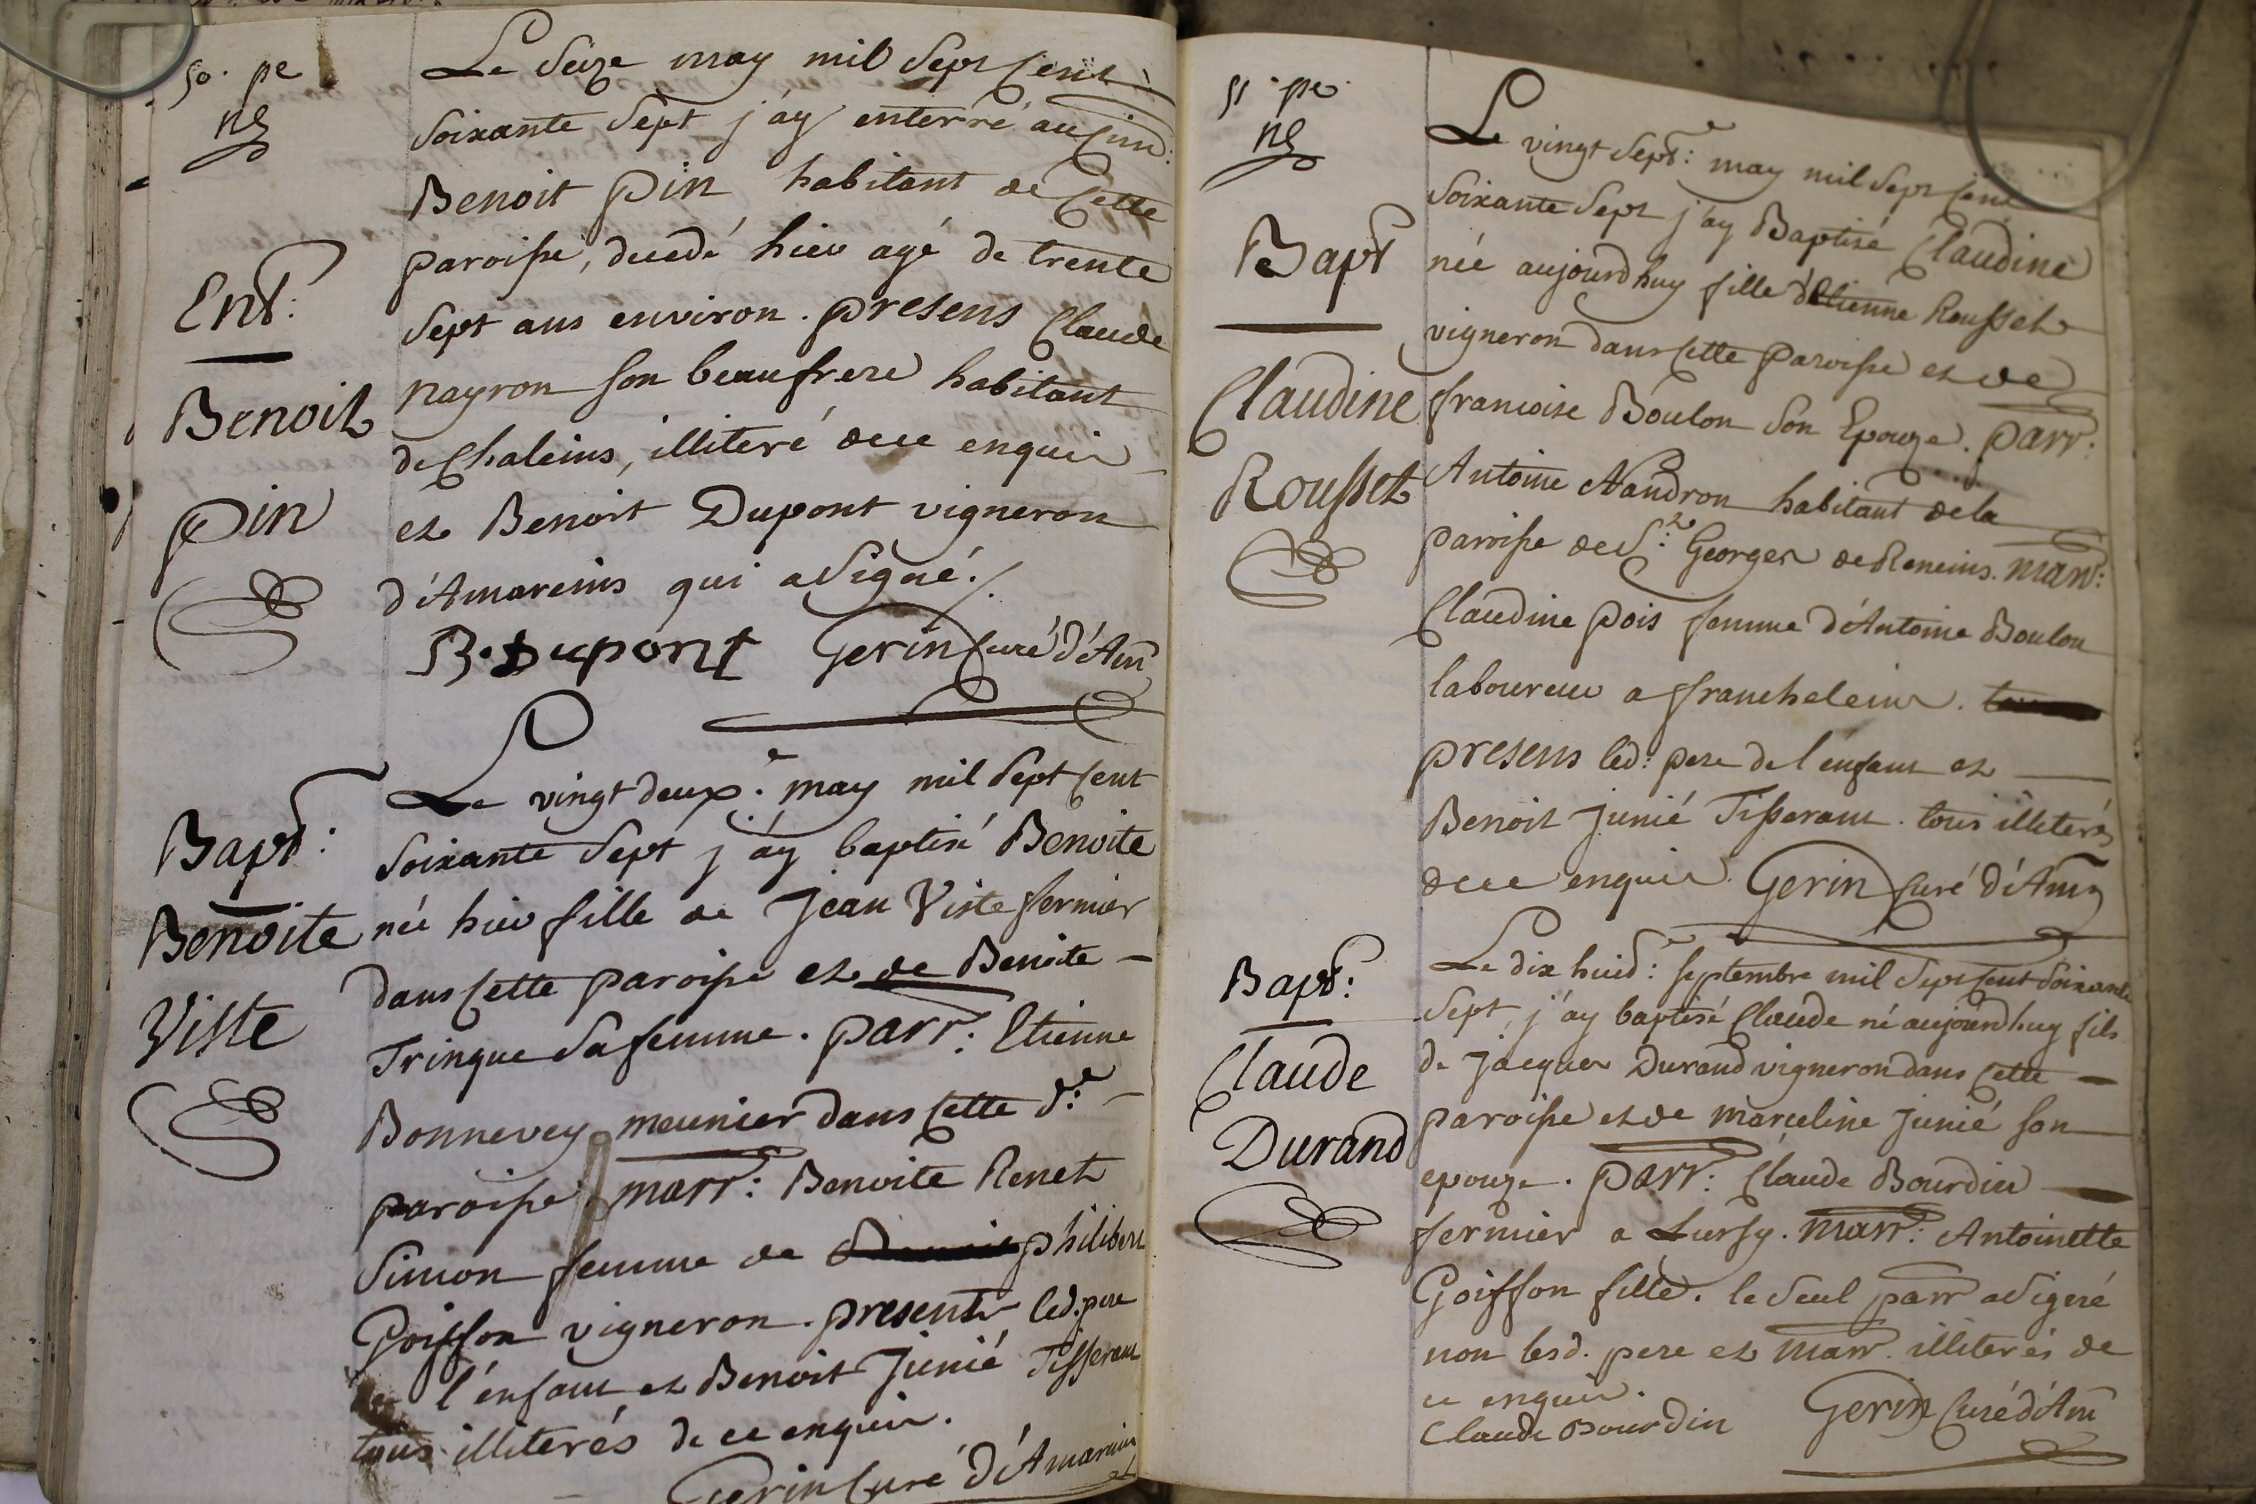 50. pe
Le Seize may mil Sept Cent
Soixante Sept j'ay enterré au Cim:
Benoit Pin habitant de Cette
paroisse, decedé hier agé de trente
Sept ans environ. presens Claude
Nayron son beaufrere habitant
de Chaleins, illiteré de ce enquis
et Benoit Dupont vigneron
d'Amareins qui a Signé.
Ent:
Benoit
Pin
B. Dupont Gerin Curé d'Am
Le vingt deux.e may mil Sept Cent
Soixante Sept j'ay baptisé Benoite
née hier fille de Jean Viste fermier
dans Cette paroisse et de Benoite
Tringue Sa femme. parr: Etienne
Bonnevey meunier dans Cette d.e
paroisse. marr: Benoite Renet
Simon femme de philibert
Goiffon vigneron. presents led. pere
de l'enfant et Benoit Junié Tisserant
tous illiterés de ce enquis.
Gerin Curé d'Amareins
Bapt:
Benoite
Viste
51. pe
Le vingt Sept:e may mil Sept Cent
Soixante Sept j'ay Baptisé Claudine
née aujourdhuy fille d'Etienne Rousset
vigneron dans Cette Paroisse et de
francoise Boulon Son Epouze. parr:
Antoine Nandron habitant de la
paroisse de St: Georges de Reneins. marr:
Claudine Pois femme d'Antoine Boulon
laboureur a francheleins.
presens led: pere de l'enfant et
Benoit Junié Tisserant. tous illiterés
de ce enquis. Gerin Curé d'Am
Bapt
Claudine
Rousset
Le dix huit:e septembre mil Sept Cent Soixante
Sept j'ay baptisé Claude né aujourdhuy fils
de Jacques Durand vigneron dans Cette
paroisse et de marceline Junié son
epouze. parr: Claude Bourdin
fermier a Lurcy. marr: Antoinette
Goiffon fille. le Seul parr a Signé
non lesd. pere et marr. illiterés de
ce enquis.
Claude Bourdin Gerin Curé d'Am
Bapt:
Claude
Durand